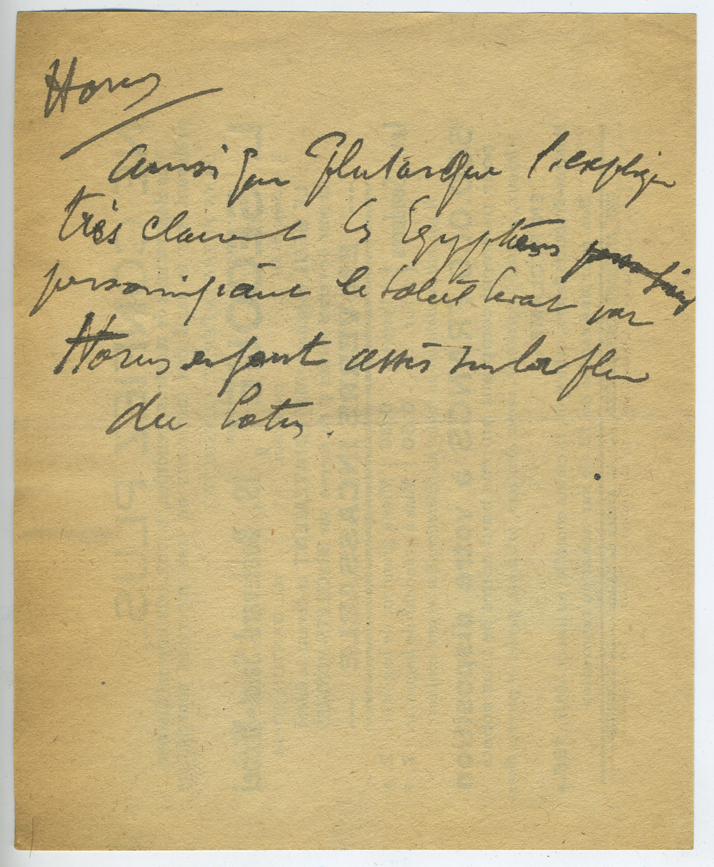 Horus
Ainsi que Plutarque l'explique
très clairement les Egyptiens
personnifiaient le soleil levant par
Horus enfant assis sur la fleur
du lotus.